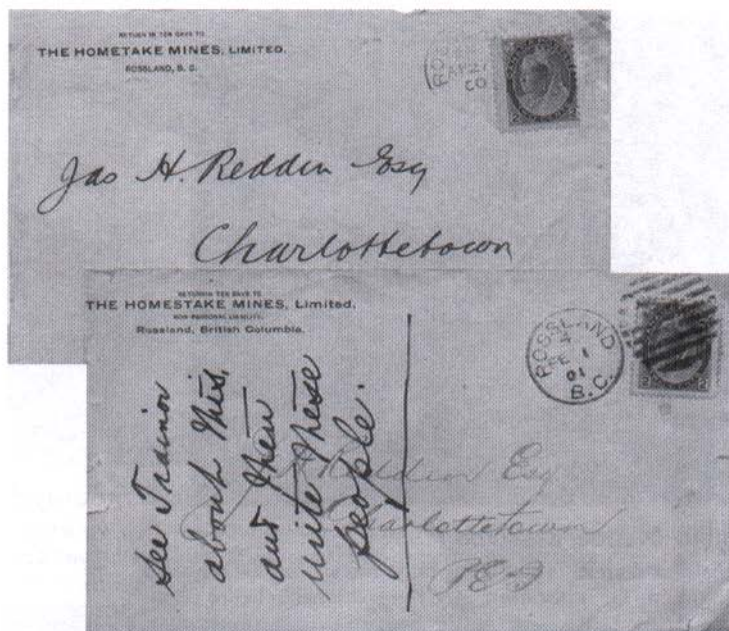 RETURN IN TEN DAYS TO
THE HOMETAKE MINES, LIMITED.
ROSSLAND, B. C.
AP 21
00
Jas H. Reddin Esq
Charlottetown
RETURN IN TEN DAYS TO
THE HOMESTAKE MINES, Limited.
NON-PERSONAL LIABILITY.
Rossland, British Columbia.
ROSSLAND
4
FE 1
01
B.C.
2
2
see Trainor
about this
and then
write these
people.
Reddin Esq
Charlottetown
PEI